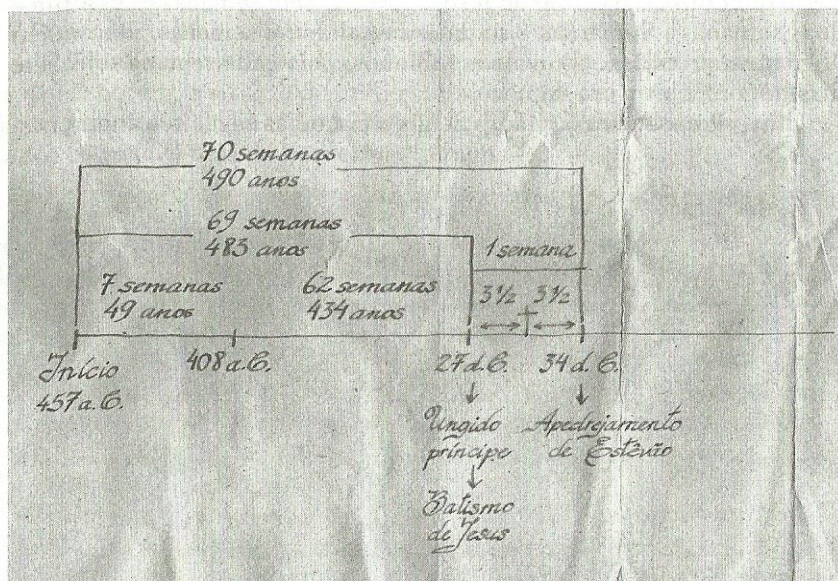 70 semanas
490 anos
69 semanas
483 anos
1 semana
7 semanas
49 anos
62 semanas
434 anos
3½ 3½
Início
457 a.C.
408 a.C.
27 d.C.
34 d.C.
Ungido
príncipe
Apedrejamento
de Estêvão
Batismo
de Jesus